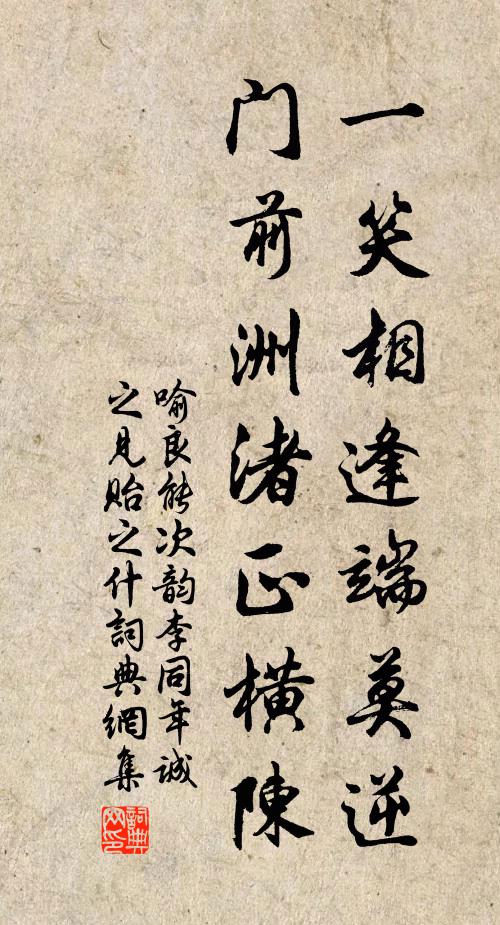 一笑相逢端莫逆
门前洲渚正横陳
喻良能次韵李同年诚
之見贻之什詞典網集
詞典
网印